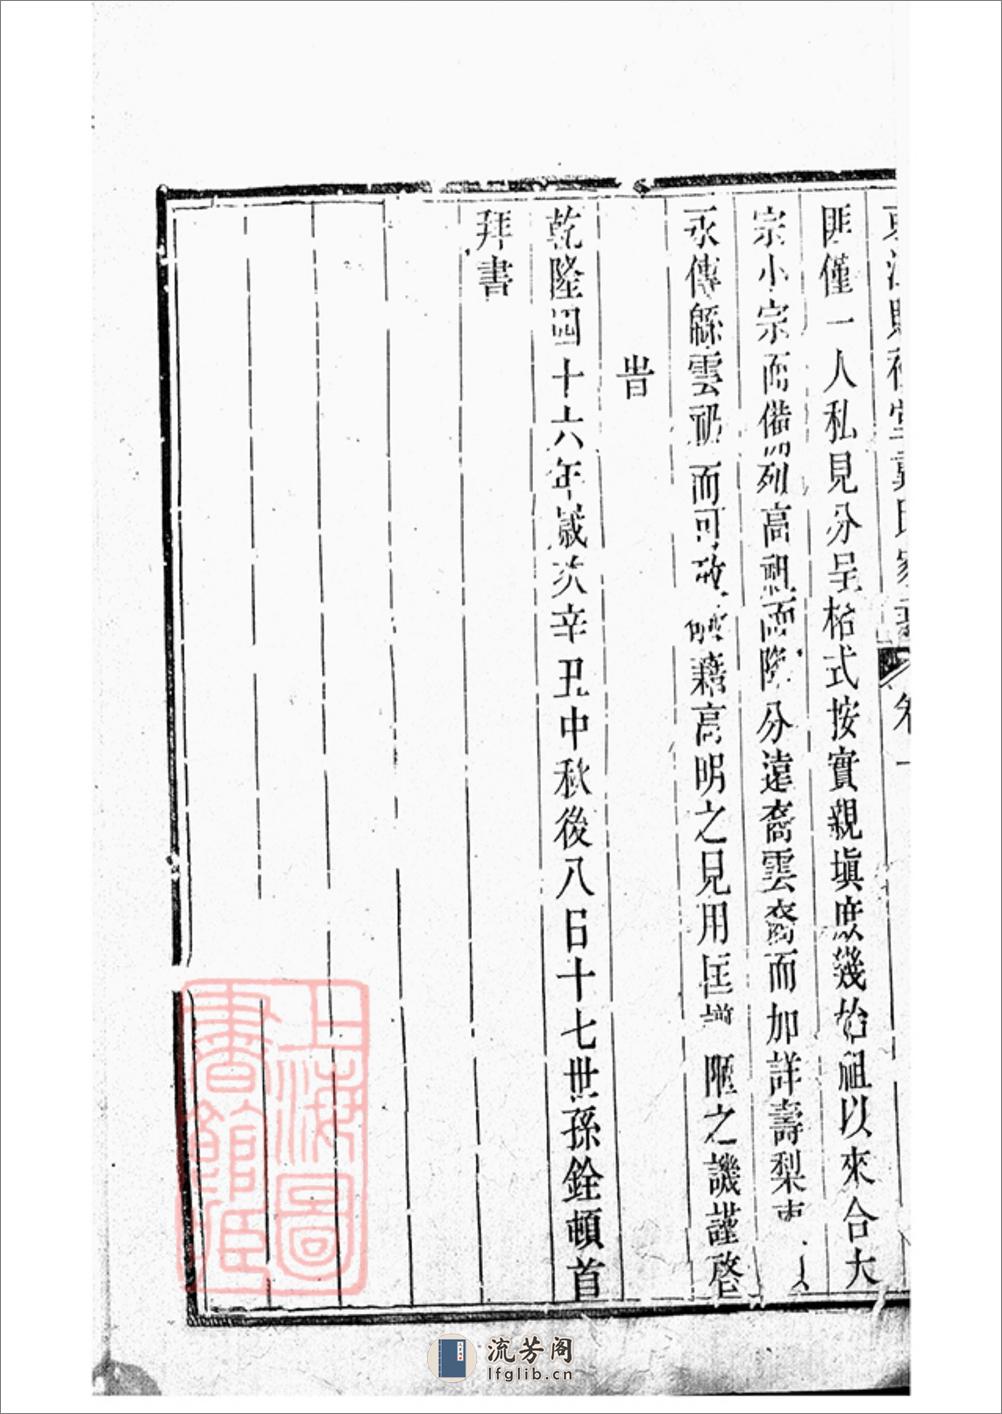 卷一
匪僅一人私見分呈格式按實親塡庶幾始祖以來合大
宗小宗而備列高祖而降分遠裔雲裔而加詳壽梨
永傳緜雲礽而可攷 藉高明之見用匡 陋之譏謹啓
旹
乾隆四十六年歲次辛丑中秋後八日十七世孫銓頓首
拜書
上海圖
書館藏
流芳阁
lfglib.cn